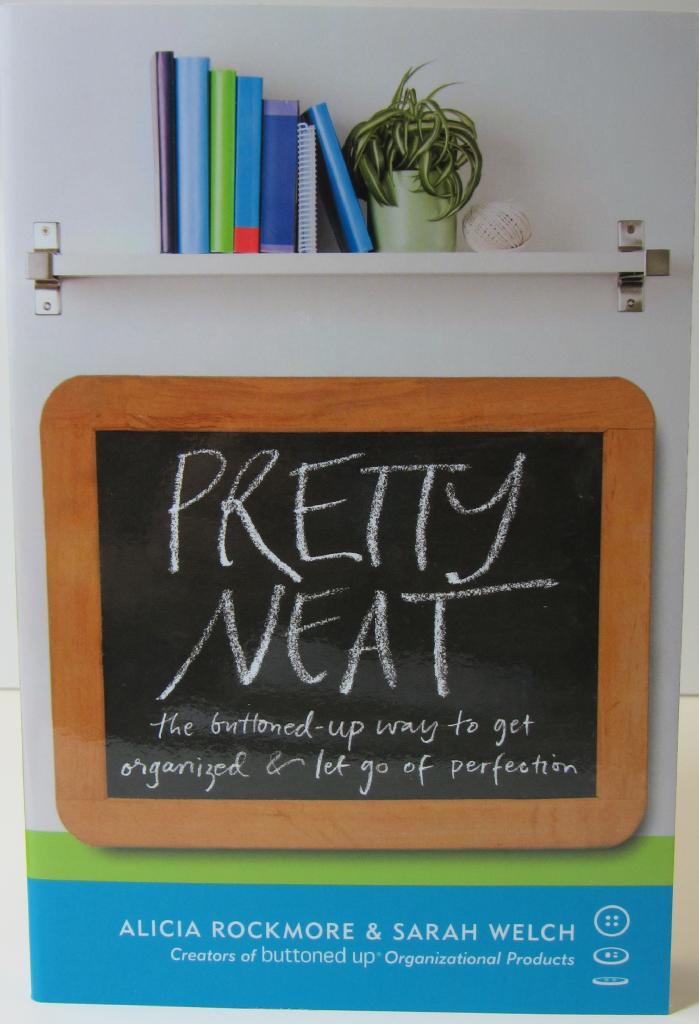 PRETTY
NEAT
the buttoned-up way to get
organized & let go of perfection
ALICIA ROCKMORE & SARAH WELCH
Creators of buttoned up® Organizational Products